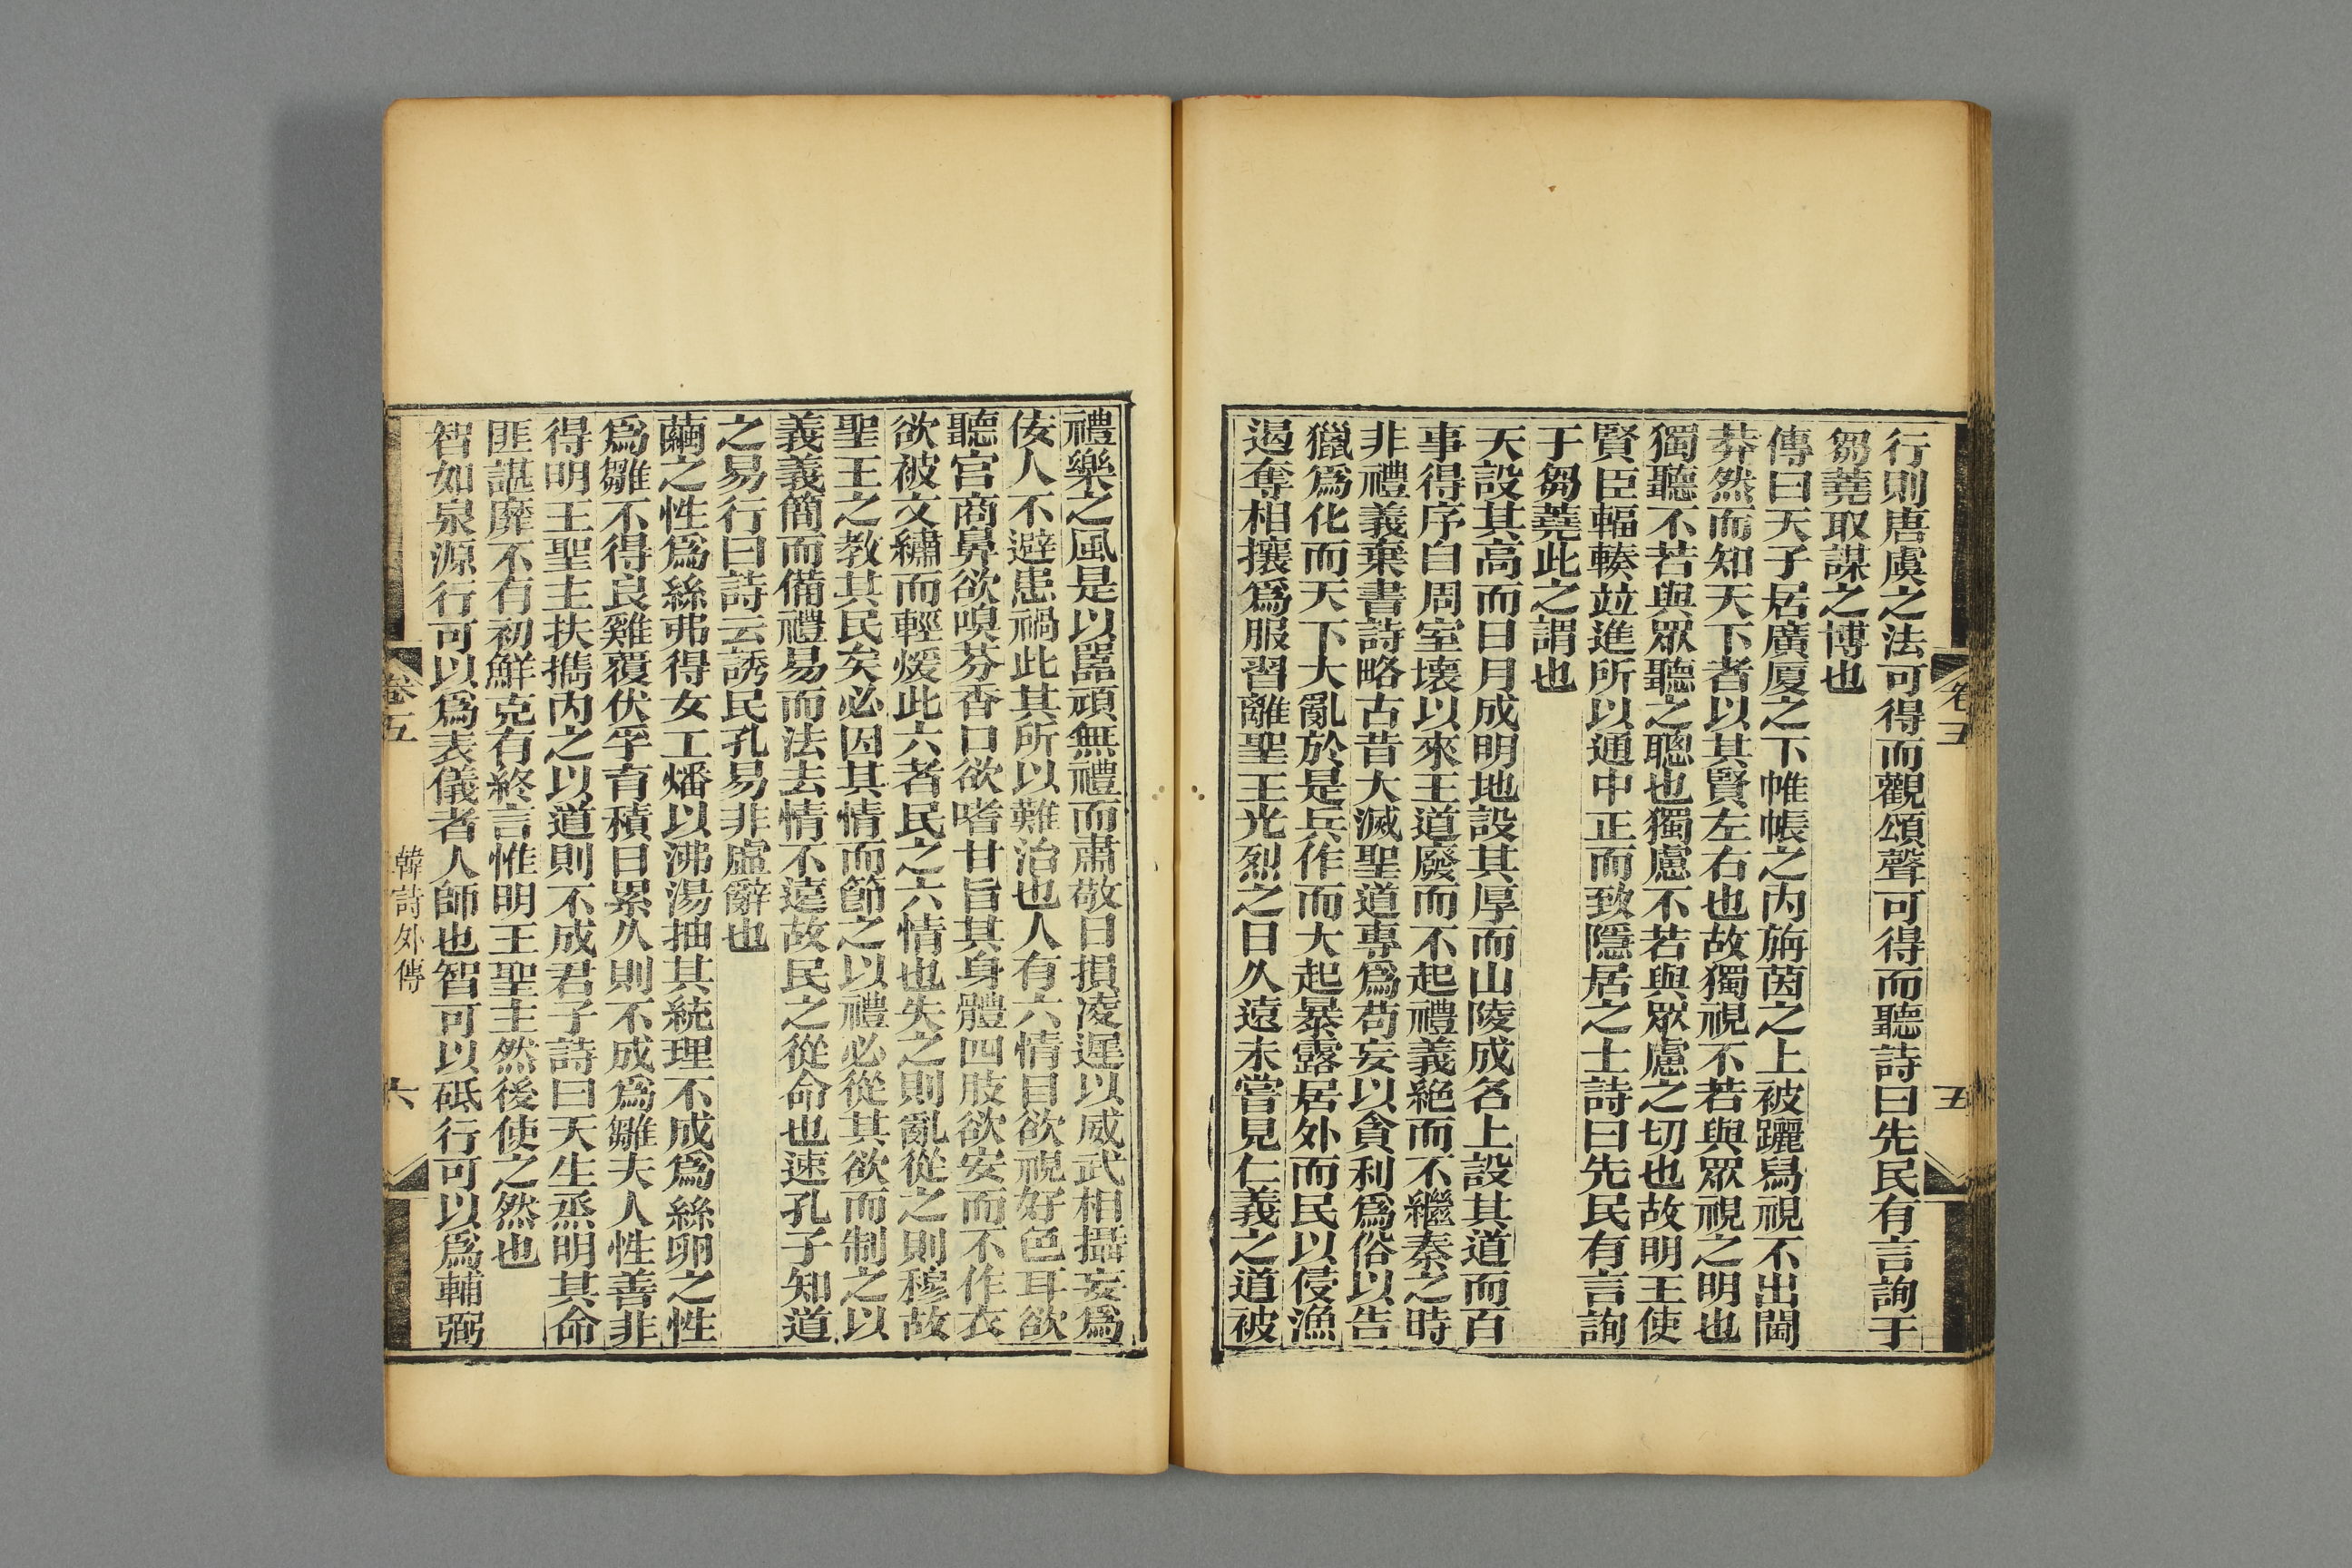 行則唐虞之法可得而觀頌聲可得而聽詩曰先民有言詢于
芻蕘取謀之博也
傳曰天子居廣厦之下帷帳之內旃茵之上被躧舄視不出閫
莽然而知天下者以其賢左右也故獨視不若與眾視之明也
獨聽不若與眾聽之聰也獨慮不若與眾慮之切也故明王使
賢臣輻輳竝進所以通中正而致隱居之士詩曰先民有言詢
于芻蕘此之謂也
天設其高而日月成明地設其厚而山陵成名上設其道而百
事得序自周室壞以來王道廢而不起禮義絕而不繼秦之時
非禮義棄書詩略古昔大滅聖道專爲苟妄以貪利爲俗以告
獵爲化而天下大亂於是兵作而大起暴露居外而民以侵漁
遏奪相攘爲服習離聖王光烈之日久遠未嘗見仁義之道被
卷五
五
禮樂之風是以嚚頑無禮而肅敬日損凌遲以威武相攝妄爲
佞人不避患禍此其所以難治也人有六情目欲視好色耳欲
聽宮商鼻欲嗅芬香口欲嗜甘旨其身體四肢欲安而不作衣
欲被文繡而輕煖此六者民之六情也失之則亂從之則穆故
聖王之教其民矣必因其情而節之以禮必從其欲而制之以
義義簡而備禮易而法去情不遠故民之從命也速孔子知道
之易行曰詩云誘民孔易非虛辭也
繭之性爲絲弗得女工燔以沸湯抽其統理不成爲絲卵之性
爲雛不得良雞覆伏孚育積日累久則不成爲雛夫人性善非
得明王聖主扶攜內之以道則不成君子詩曰天生烝明其命
匪諶靡不有初鮮克有終言惟明王聖主然後使之然也
智如泉源行可以爲表儀者人師也智可以砥行可以爲輔弼
卷五
韓詩外傳
六